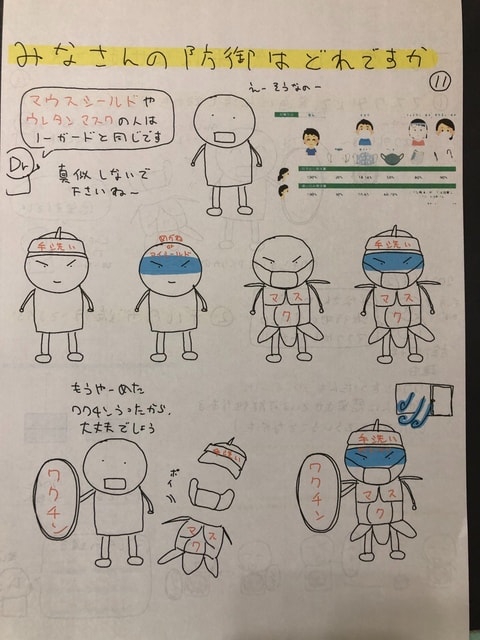 みなさんの防御はどれですか
11
えー そうなのー
マウスシールドや
ウレタンマスクの人は
ノーガードと同じです
Dr
真似しないで
下さいね〜
手洗い
めがね
or
アイシールド
マスク
手洗い
マスク
もうやーめた
ワクチンうったから、
大丈夫でしょう
ワクチン
ポイッ
手洗い
マスク
ワクチン
手洗い
マスク